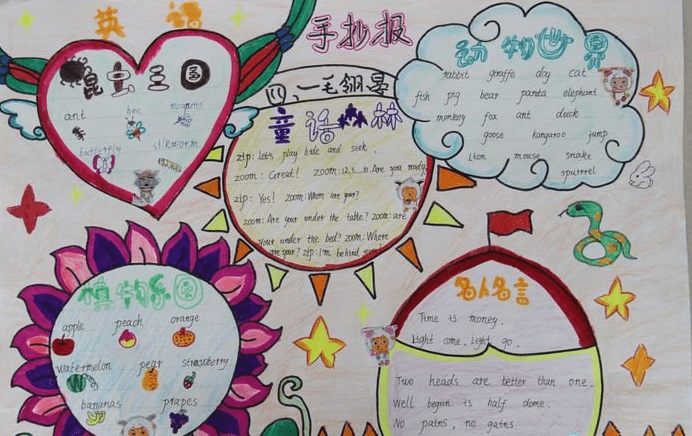 英语
手抄报
昆虫王国
ant bee mosquito
butterfly silkworm
童话森林
zip: Let's play hide and seek.
zoom: Great! zoom: 1.2.3....10. Are you ready
zip: Yes! zoom: Where are your?
zoom: Are your under the table? zoom: are
your under the bed? zoom: Where
are your? zip: I'm behind
动物世界
rabbit giraffe dog cat
fish pig bear panta elephant
monkey fox ant duck
goose kangaroo jump
Lion mouse snake
植物乐园
apple peach orange
watermelon pear strawberry
bananas grapes
名人名言
Time is money.
Light come, Light go.
Two heads are better than one.
Well begun is half dome.
No pains, no gains